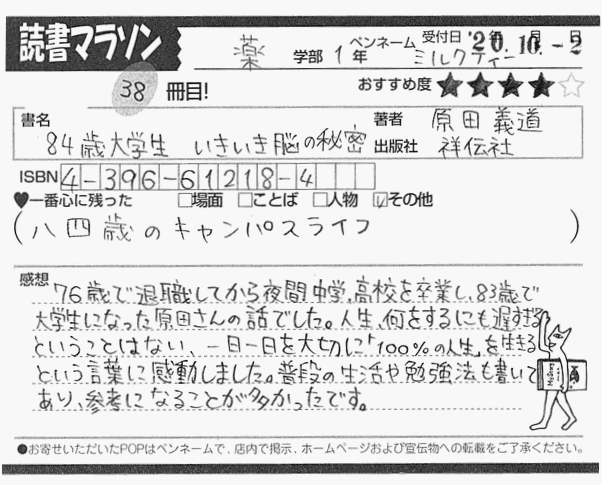 読書マラソン
薬 学部 1年 ペンネーム ミルクティー 受付日 '20.10.-2
38 冊目!
おすすめ度 ★★★★☆
書名 84歳大学生 いきいき脳の秘密
著者 原田 義道
出版社 祥伝社
ISBN 4-396-61218-4
♥一番心に残った □場面 □ことば □人物 ☑その他
(八四歳のキャンパスライフ)
感想 76歳で退職してから夜間中学、高校を卒業し、83歳で
大学生になった原田さんの話でした。人生、何をするにも遅すぎる
ということはない、一日一日を大切に「100%の人生」を生きる
という言葉に感動しました。普段の生活や勉強法も書いて
あり、参考になることが多かったです。
●お寄せいただいたPOPはペンネームで、店内で掲示、ホームページおよび宣伝物への転載をご了承ください。